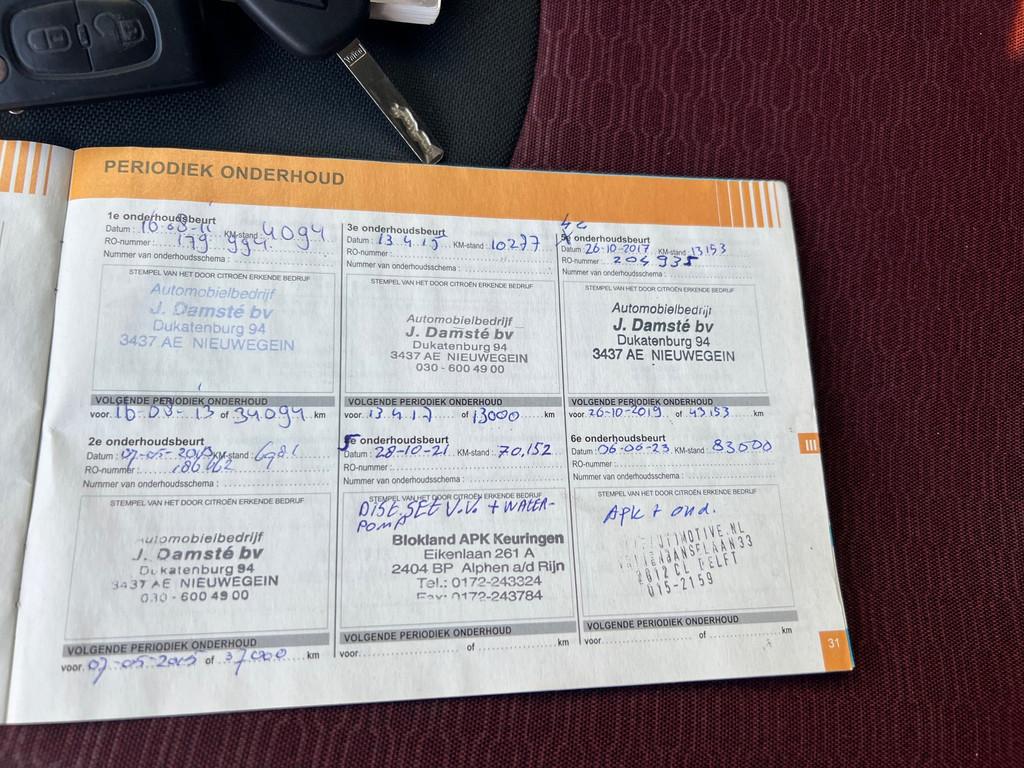 Valeo
PERIODIEK ONDERHOUD
1e onderhoudsbeurt
Datum : 16-03-11 KM-stand : 4094
RO-nummer : 179 994
Nummer van onderhoudsschema :
STEMPEL VAN HET DOOR CITROËN ERKENDE BEDRIJF
Automobielbedrijf
J. Damsté bv
Dukatenburg 94
3437 AE NIEUWEGEIN
VOLGENDE PERIODIEK ONDERHOUD
voor 16-03-13 of 34094 km
2e onderhoudsbeurt
Datum : 07-05- KM-stand : 6981
RO-nummer : 186062
Nummer van onderhoudsschema :
STEMPEL VAN HET DOOR CITROËN ERKENDE BEDRIJF
Automobielbedrijf
J. Damsté bv
Dukatenburg 94
3437 AE NIEUWEGEIN
030 - 600 49 00
VOLGENDE PERIODIEK ONDERHOUD
voor 07-05-2015 of 37000 km
3e onderhoudsbeurt
Datum : 13.4.15 KM-stand : 10277
RO-nummer :
Nummer van onderhoudsschema :
STEMPEL VAN HET DOOR CITROËN ERKENDE BEDRIJF
Automobielbedrijf
J. Damsté bv
Dukatenburg 94
3437 AE NIEUWEGEIN
030 - 600 49 00
VOLGENDE PERIODIEK ONDERHOUD
voor 13.4.17 of 13000 km
5e onderhoudsbeurt
Datum : 28-10-21 KM-stand : 70,152
RO-nummer :
Nummer van onderhoudsschema :
STEMPEL VAN HET DOOR CITROËN ERKENDE BEDRIJF
DIST. SET V.V. + WATER-
POMP
Blokland APK Keuringen
Eikenlaan 261 A
2404 BP Alphen a/d Rijn
Tel.: 0172-243324
Fax: 0172-243784
VOLGENDE PERIODIEK ONDERHOUD
voor of km
4e
onderhoudsbeurt
Datum : 26-10-2017 KM-stand : 13153
RO-nummer : 204935
Nummer van onderhoudsschema :
STEMPEL VAN HET DOOR CITROËN ERKENDE BEDRIJF
Automobielbedrijf
J. Damsté bv
Dukatenburg 94
3437 AE NIEUWEGEIN
VOLGENDE PERIODIEK ONDERHOUD
voor 26-10-2019 of 43153 km
6e onderhoudsbeurt
Datum : 06-06-23 KM-stand : 83000
RO-nummer :
Nummer van onderhoudsschema :
STEMPEL VAN HET DOOR CITROËN ERKENDE BEDRIJF
Apk + ond.
2612 CL DELFT
015-2159
VOLGENDE PERIODIEK ONDERHOUD
voor of km
III
31